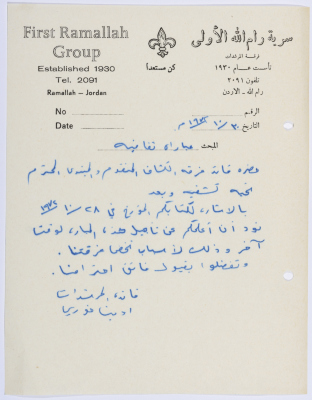 First Ramallah
Group
Established 1930
Tel. 2091
Ramallah – Jordan
سرية رام الله الأولى
فرقة المرشدات
تأسست عام ١٩٣٠
تلفون ٢٠٩١
رام الله - الاردن
كن مستعداً
No
الرقم
Date
التاريخ ٣٠ / ١٠ / م
المبحث مباراة ثقافيه
حضرة قائد فرقة الكشاف المتقدم والمبتدئ المحترم
تحيه كشفيه وبعد
بالاشارة لكتابكم المؤرخ في ٢٨ / ١٠
نود أن أعلمكم عن تأجيل هذه المباراة لوقت
آخر وذلك لأسباب تخص فرقتنا .
وتفضلوا بقبول فائق احترامنا .
قائدة المرشدات
خوري